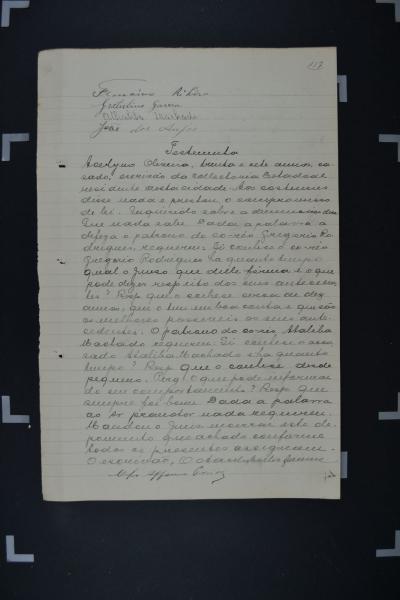 117
Francisco Ribeiro
Gertulino Garcia
Athaliba Machado
João dos Anjos
Testemunha
Acelyno Oliveira, trinta e sete annos, ca-
sado, escrivão da Collectoria Estadual
residente nesta cidade. Aos costumes
disse nada e prestou o compromisso
de lei. Inquirido sobre a denuncia disse
que nada sabe. Dada a palavra a
defeza o patrono do co-réo Gregorio Ro-
drigues, requereu: Si conhece o co-réo
Gregorio Rodrigues ha quanto tempo
qual o juizo que delle fórma e o que
pode dizer respeito dos seus anteceden-
tes? Resp que o conhece cerca de dez
annos, que o tem em boa conta e que são
os melhores possiveis os seus ante-
cedentes. O patrono do co-réo Ataliba
Machado requereu: Si conhece o accu-
sado Ataliba Machado e ha quanto
tempo? Resp que o conhece desde
pequeno. Perg. o que pode informar
do seu comportamento? Resp que
sempre foi bom. Dada a palavra
ao Dr promotor nada requereu.
Mandou o Juiz encerrar este de-
poimento que achado conforme
todos os presentes assignam.
O escrivão, O